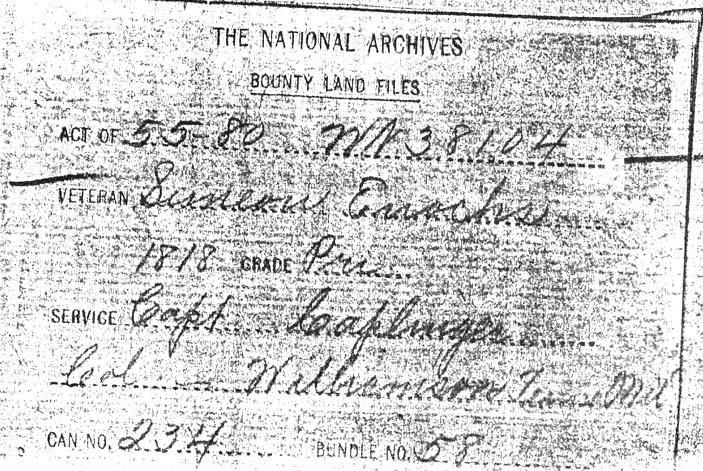 THE NATIONAL ARCHIVES
BOUNTY LAND FILES
ACT OF 55-80 WT 38104
VETERAN Simeon Enochs
1818 GRADE Pri
SERVICE Capt Caplinger
Col Williamson Tenn Mil
CAN NO. 234 BUNDLE NO. 58